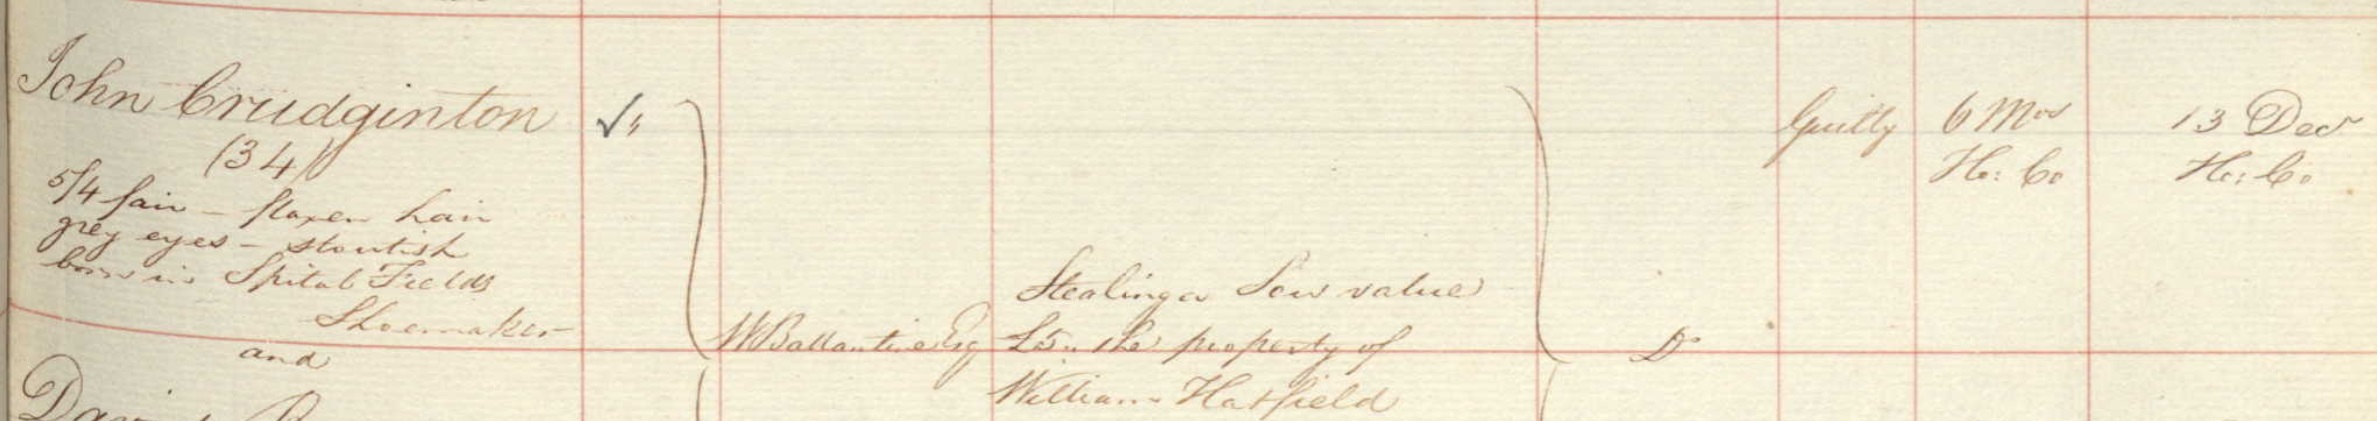 John Crudginton
(34)
5/4 fair – flaxen hair
grey eyes – stoutish
born in Spital Fields
Shoemaker
and
W Ballantine Esq
Stealing a Sow value
£5 – the property of
William Hatfield
Do
Guilty
6 Mos
Ho: Co
13 Decr
Ho: Co